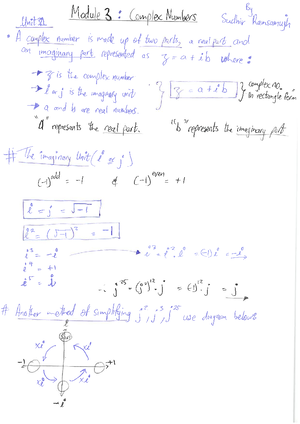 By
Module 3 : Complex Numbers
Unit
• A complex number is made up of two parts, a real part and
an imaginary part, represented as z = a + ib where :
→ z is the complex number
→ i or j is the imaginary unit
→ a and b are real numbers.
z = a + ib
complex no.
in rectangle form
"a" represents the real part.
"b" represents the imaginary part
# The imaginary Unit (i or j)
(-1)^odd = -1 & (-1)^even = +1
i = j = √-1
i² = (√-1)² = -1
i³ = -i
i⁴ = +1
i⁵ = i
∴ j²⁵ = (j²)¹² · j = (-1)¹² · j = j
# Another method of simplifying
use diagram below:
i
-1
+1
xi
xi
xi
xi
-i